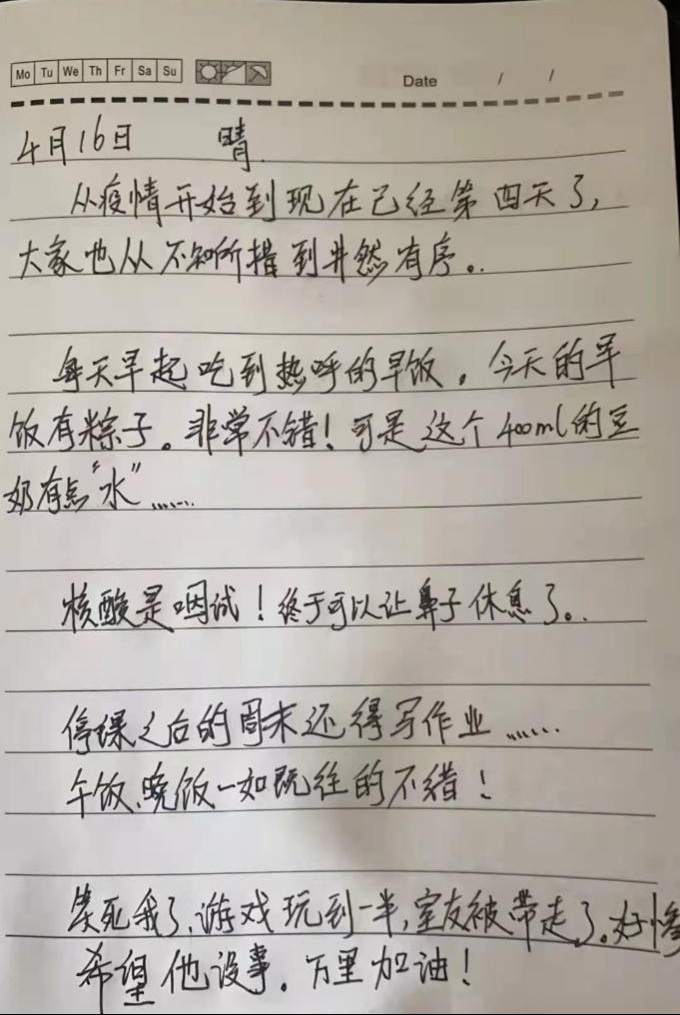 Mo Tu We Th Fr Sa Su
Date / /
4月16日 晴.
从疫情开始到现在已经第四天了,
大家也从不知所措到井然有序。
每天早起吃到热呼的早饭。今天的早
饭有粽子。非常不错!可是这个400ml的豆
奶有点“水”......
核酸是咽试!终于可以让鼻子休息了。
停课之后的周末还得写作业......
午饭、晚饭一如既往的不错!
笑死我了,游戏玩到一半,室友被带走了。好惨
希望他没事。万里加油!